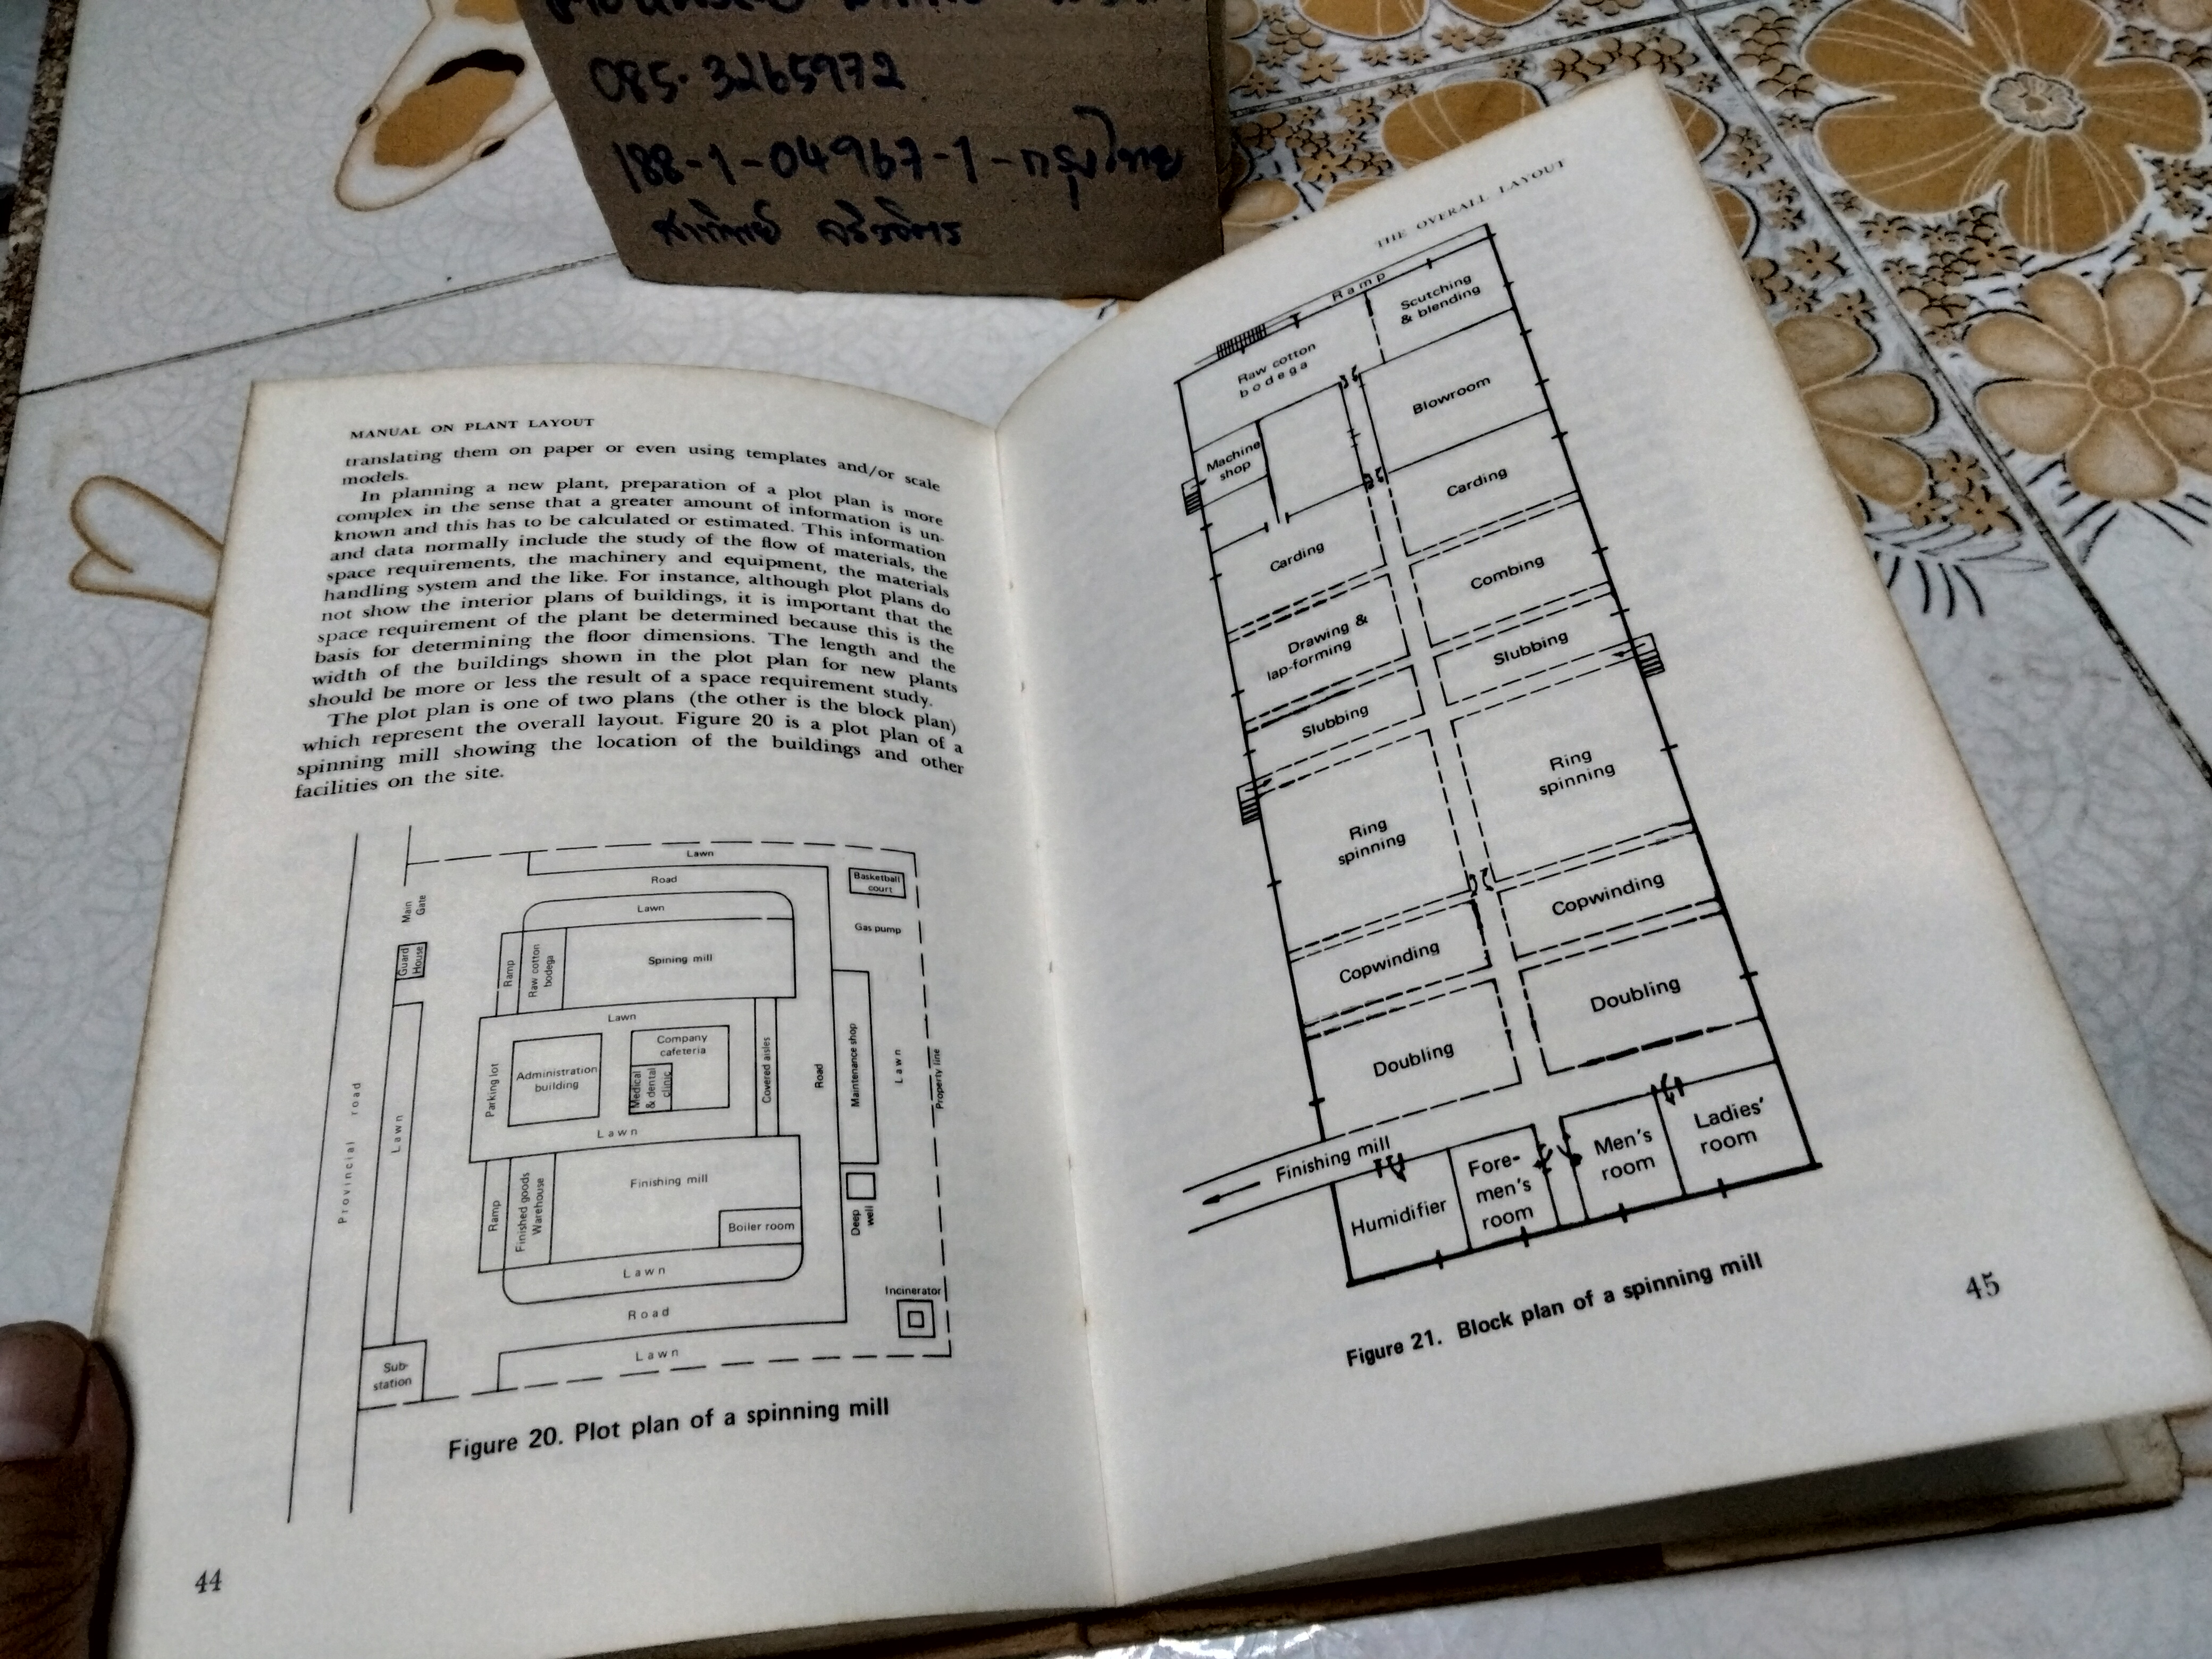 085-3265972
188-1-04967-1-กรุงไทย
MANUAL ON PLANT LAYOUT
translating them on paper or even using templates and/or scale
models.
In planning a new plant, preparation of a plot plan is more
complex in the sense that a greater amount of information is un-
known and this has to be calculated or estimated. This information
and data normally include the study of the flow of materials, the
space requirements, the machinery and equipment, the materials
handling system and the like. For instance, although plot plans do
not show the interior plans of buildings, it is important that the
space requirement of the plant be determined because this is the
basis for determining the floor dimensions. The length and the
width of the buildings shown in the plot plan for new plants
should be more or less the result of a space requirement study.
The plot plan is one of two plans (the other is the block plan)
which represent the overall layout. Figure 20 is a plot plan of a
spinning mill showing the location of the buildings and other
facilities on the site.
Lawn
Road
Basketball
court
Main
Gate
Lawn
Gas pump
Guard
House
Ramp
Raw cotton
bodega
Spining mill
Lawn
Parking lot
Administration
building
Company
cafeteria
Medical
& dental
clinic
Covered aisles
Road
Maintenance shop
Lawn
Property line
Provincial road
Lawn
Lawn
Ramp
Finished goods
Warehouse
Finishing mill
Boiler room
Deep
well
Lawn
Incinerator
Road
Lawn
Sub-
station
Figure 20. Plot plan of a spinning mill
44
THE OVERALL LAYOUT
Ramp
Scutching
& blending
Raw cotton
bodega
Blowroom
Machine
shop
Carding
Carding
Combing
Drawing &
lap-forming
Slubbing
Slubbing
Ring
spinning
Ring
spinning
Copwinding
Copwinding
Doubling
Doubling
Finishing mill
Humidifier
Fore-
men's
room
Men's
room
Ladies'
room
Figure 21. Block plan of a spinning mill
45